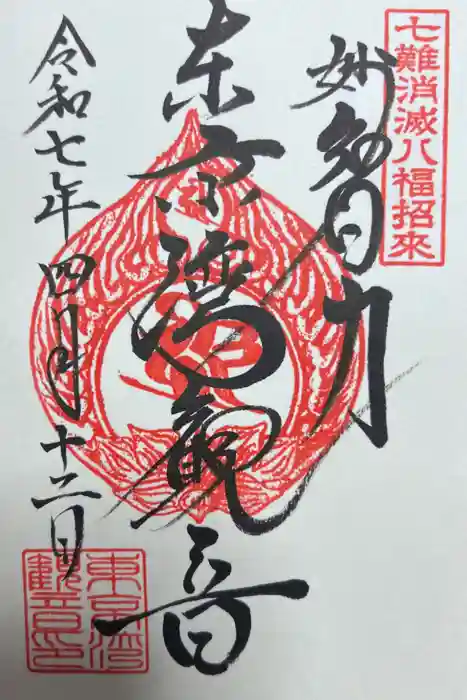 七難消滅八福招來
東京湾観音
令和七年四月十二日
東京湾
観音印